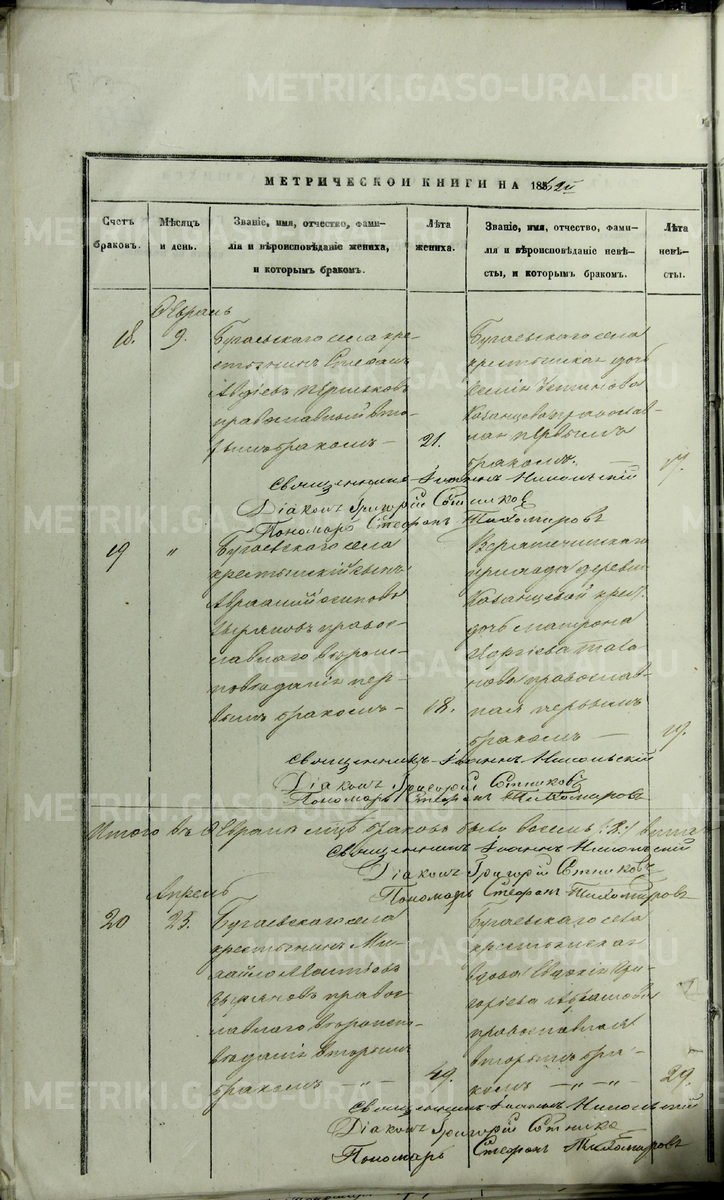 МЕТРИЧЕСКОЙ КНИГИ НА 1862й
Счетъ браковъ.
Мѣсяцъ и день.
Званіе, имя, отчество, фами-
лія и вѣроисповѣданіе жениха,
и которымъ бракомъ.
Лѣта жениха.
Званіе, имя, отчество, фами-
лія и вѣроисповѣданіе невѣ-
сты, и которымъ бракомъ.
Лѣта невѣ-
сты.
Февраль
18.
9.
Бугаевскаго села кре-
стьянинъ Стефанъ
Авдіевъ
православный вто-
рымъ бракомъ –
21.
Бугаевскаго села
крестьянская дочь
Устинова
Казанцева православ-
ная первымъ
бракомъ. –
17.
Священникъ Іоаннъ Никольскій
Діаконъ Григорій Сотниковъ
Пономарь Стефанъ Тихомировъ
19
"
Бугаевскаго села
крестьянскій сынъ
Авраамій Осиповъ
Зыряновъ правос-
лавнаго вѣроис-
повѣданія пер-
вымъ бракомъ –
18.
прихода деревни
Казанцевой крест.
дочь Матрона
Георгіева
православ-
ная первымъ
бракомъ –
19.
Священникъ Іоаннъ Никольскій
Діаконъ Григорій Сотниковъ
Пономарь Стефанъ Тихомировъ
Итого въ Февралѣ мцѣ браковъ было восемь (8.)
Священникъ Іоаннъ Никольскій
Діаконъ Григорій Сотниковъ
Пономарь Стефанъ Тихомировъ
Апрель
20
23.
Бугаевскаго села
крестьянинъ Ми-
хайло
Зыряновъ правос-
лавнаго вѣроиспо-
вѣданія вторымъ
бракомъ – " –
49.
Бугаевскаго села
крестьянская
вдова Евдокія Гри-
горіева
православная
вторымъ бра-
комъ – " – " –
29.
Священникъ Іоаннъ Никольскій
Діаконъ Григорій Сотнико
Пономарь Стефанъ Тихомировъ
METRIKI.GASO-URAL.RU